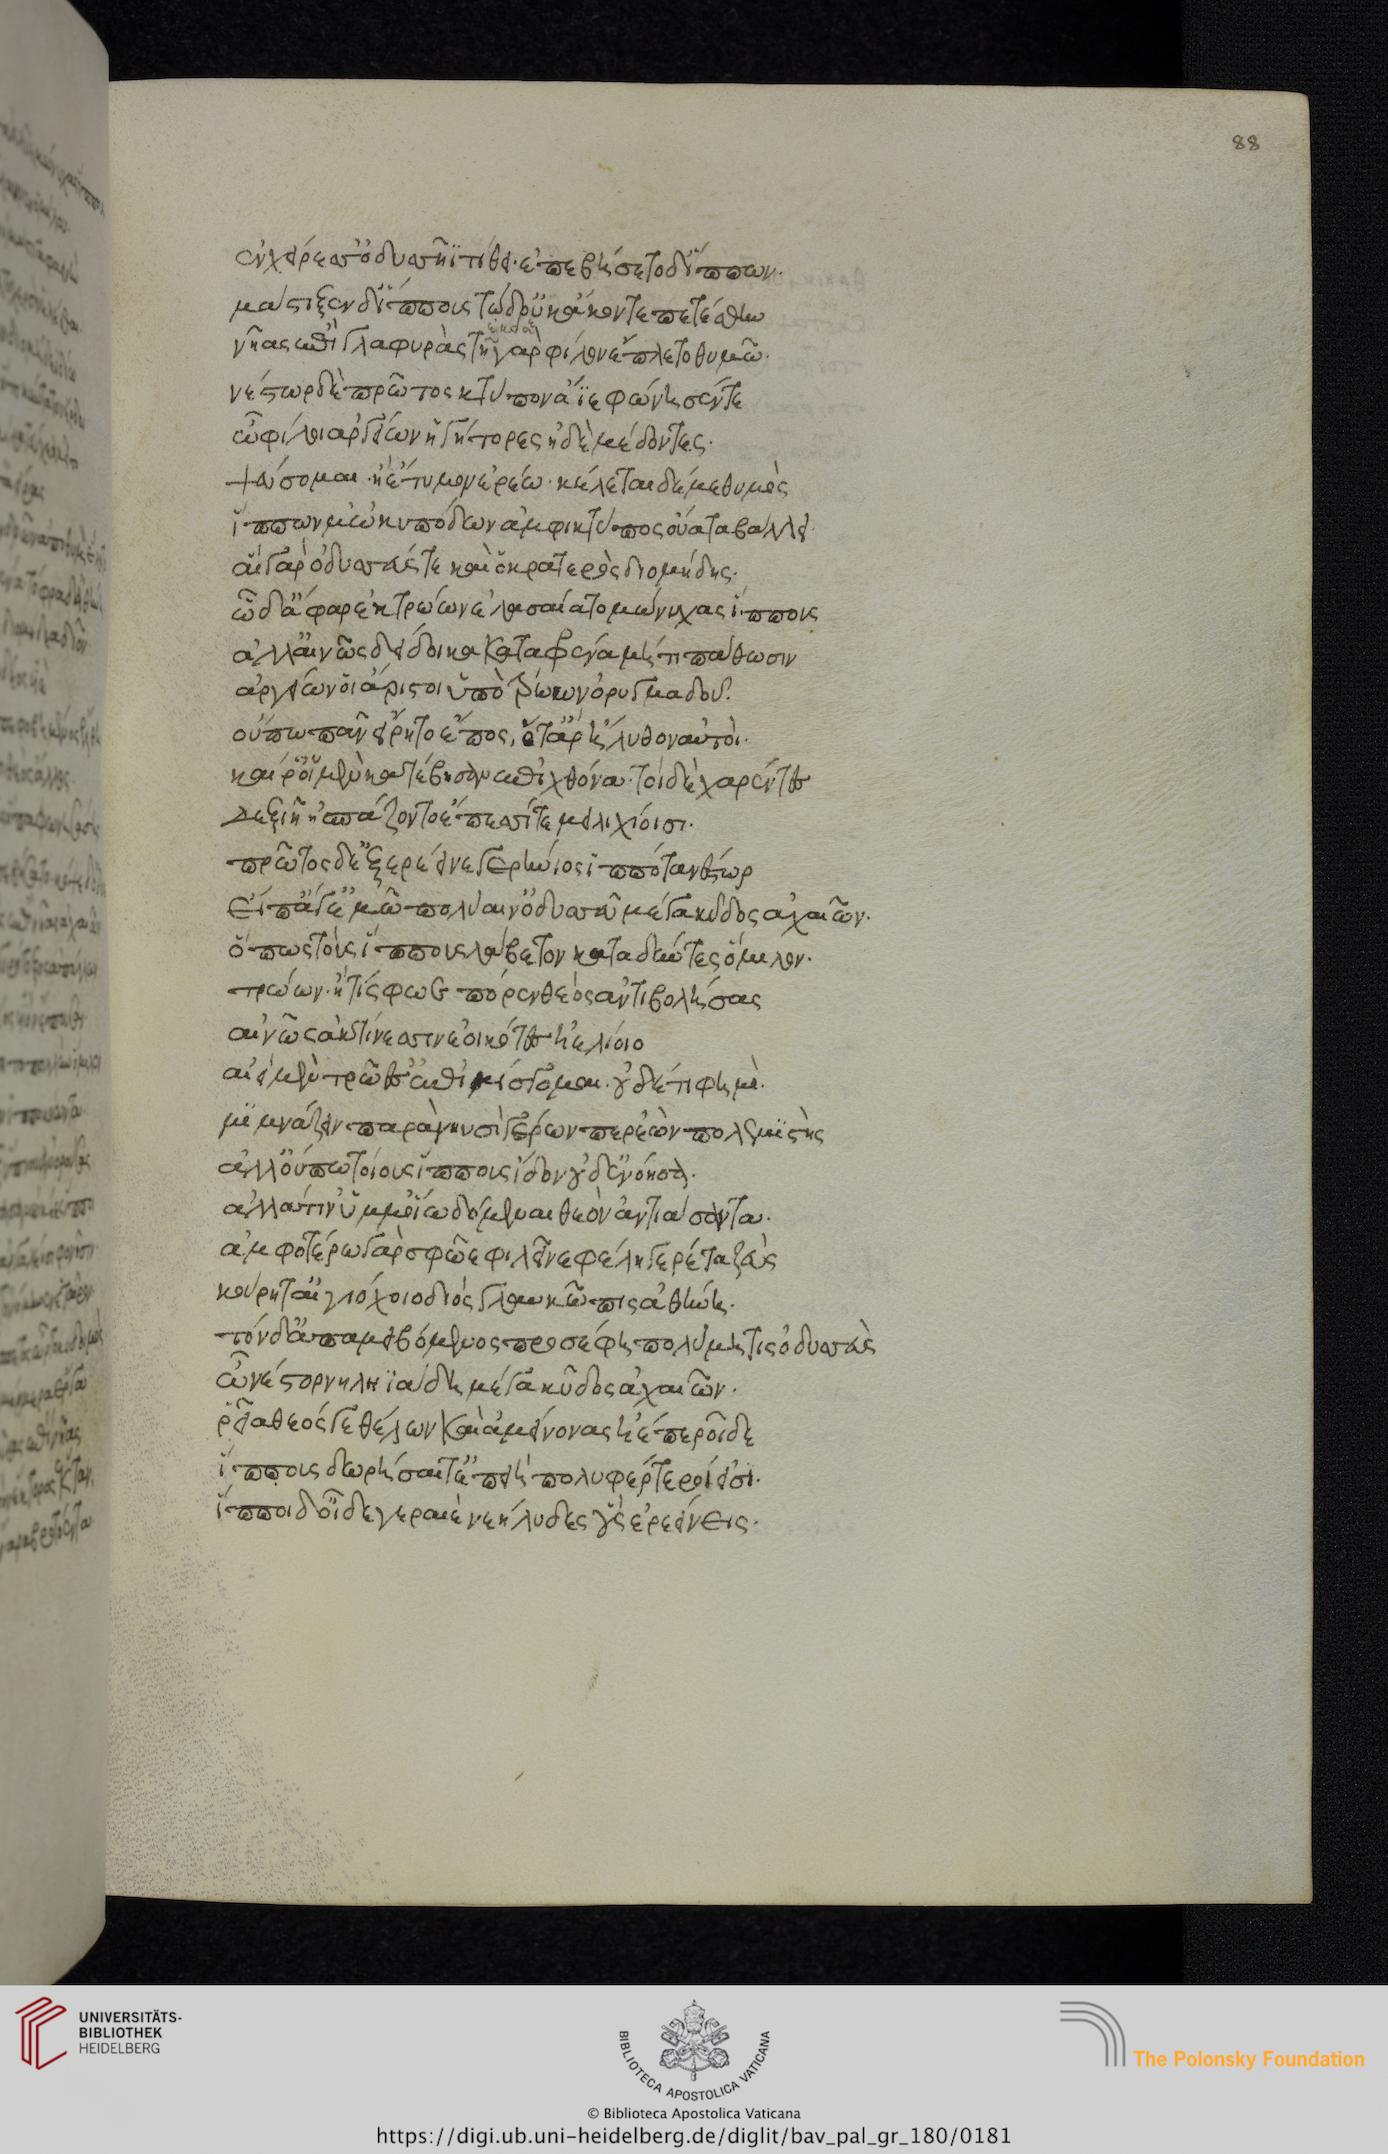 88
ἐν χείρεσσ' ὀδυσσῆϊ τίθει· ἐπεβήσετο δ' ἵππων·
μάστιξεν δ' ἵππους τὼ δ' οὐκ ἄκοντε πετέσθην
νῆας ἐπὶ γλαφυρὰς τῇ γὰρ φίλον ἔπλετο θυμῶ·
νέστωρ δὲ πρῶτος κτύπον ἄϊε φώνησέν τε
ὦ φίλοι ἀργείων ἡγήτορες ἠδὲ μέδοντες·
ψεύσομαι· ἢ ἔτυμον ἐρέω· κέλεται δέ με θυμὸς
ἵππων μ' ὠκυπόδων ἀμφὶ κτύπος οὔατα βάλλει·
αἲ γὰρ ὀδυσσεύς τε καὶ ὁ κρατερὸς διομήδης·
ὧδ' ἄφαρ ἐκ τρώων ἐλασαίατο μώνυχας ἵππους
ἀλλ' αἰνῶς δείδοικα κατὰ φρένα μή τι πάθωσιν
ἀργείων οἱ ἄριστοι ὑπὸ τρώων ὀρυγμαδοῦ·
οὔπω πᾶν εἴρητο ἔπος, ὅτ' ἄρ' ἤλυθον αὐτοί·
καί ῥ' οἱ μὲν κατέβησαν ἐπὶ χθόνα· τοὶ δὲ χαρέντες
δεξιῇ ἠσπάζοντο ἔπεσσί τε μειλιχίοισι·
πρῶτος δ' ἐξερέεινε γερήνιος ἱππότα νέστωρ
εἴπ' ἄγε μ' ὦ πολύαιν' ὀδυσσεῦ μέγα κῦδος ἀχαιῶν·
ὅπως τοὺς ἵππους λάβετον καταδύντες ὅμιλον·
τρώων· ἤ τίς σφωε πόρεν θεὸς ἀντιβολήσας
αἰνῶς ἀκτίνεσσιν ἐοικότες ἠελίοιο
αἰεὶ μὲν τρώεσσ' ἐπιμίσγομαι· οὐδέ τί φημὶ·
μιμνάζειν παρὰ νηυσὶ γέρων περ ἐὼν πολεμιστὴς
ἀλλ' οὔπω τοίους ἵππους ἴδον οὐδ' ἐνόησα·
ἀλλά τιν' ὔμμ' ὀΐω δόμεναι θεὸν ἀντιάσαντα·
ἀμφοτέρω γὰρ σφῶε φιλεῖ νεφεληγερέτα ζεὺς
κούρη τ' αἰγιόχοιο διὸς γλαυκῶπις ἀθήνη·
τὸν δ' ἀπαμειβόμενος προσέφη πολύμητις ὀδυσσεὺς
ὦ νέστορ νηληϊάδη μέγα κῦδος ἀχαιῶν·
ῥεῖα θεός γ' ἐθέλων καὶ ἀμείνονας ἠέ περ οἵδε
ἵππους δωρήσαιτ' ἐπειὴ πολὺ φέρτεροί εἰσι·
ἵπποι δ' οἵδε γεραιὲ νεήλυδες οὓς ἐρεείνεις·
UNIVERSITÄTS-
BIBLIOTHEK
HEIDELBERG
BIBLIOTECA APOSTOLICA VATICANA
The Polonsky Foundation
© Biblioteca Apostolica Vaticana
https://digi.ub.uni-heidelberg.de/diglit/bav_pal_gr_180/0181